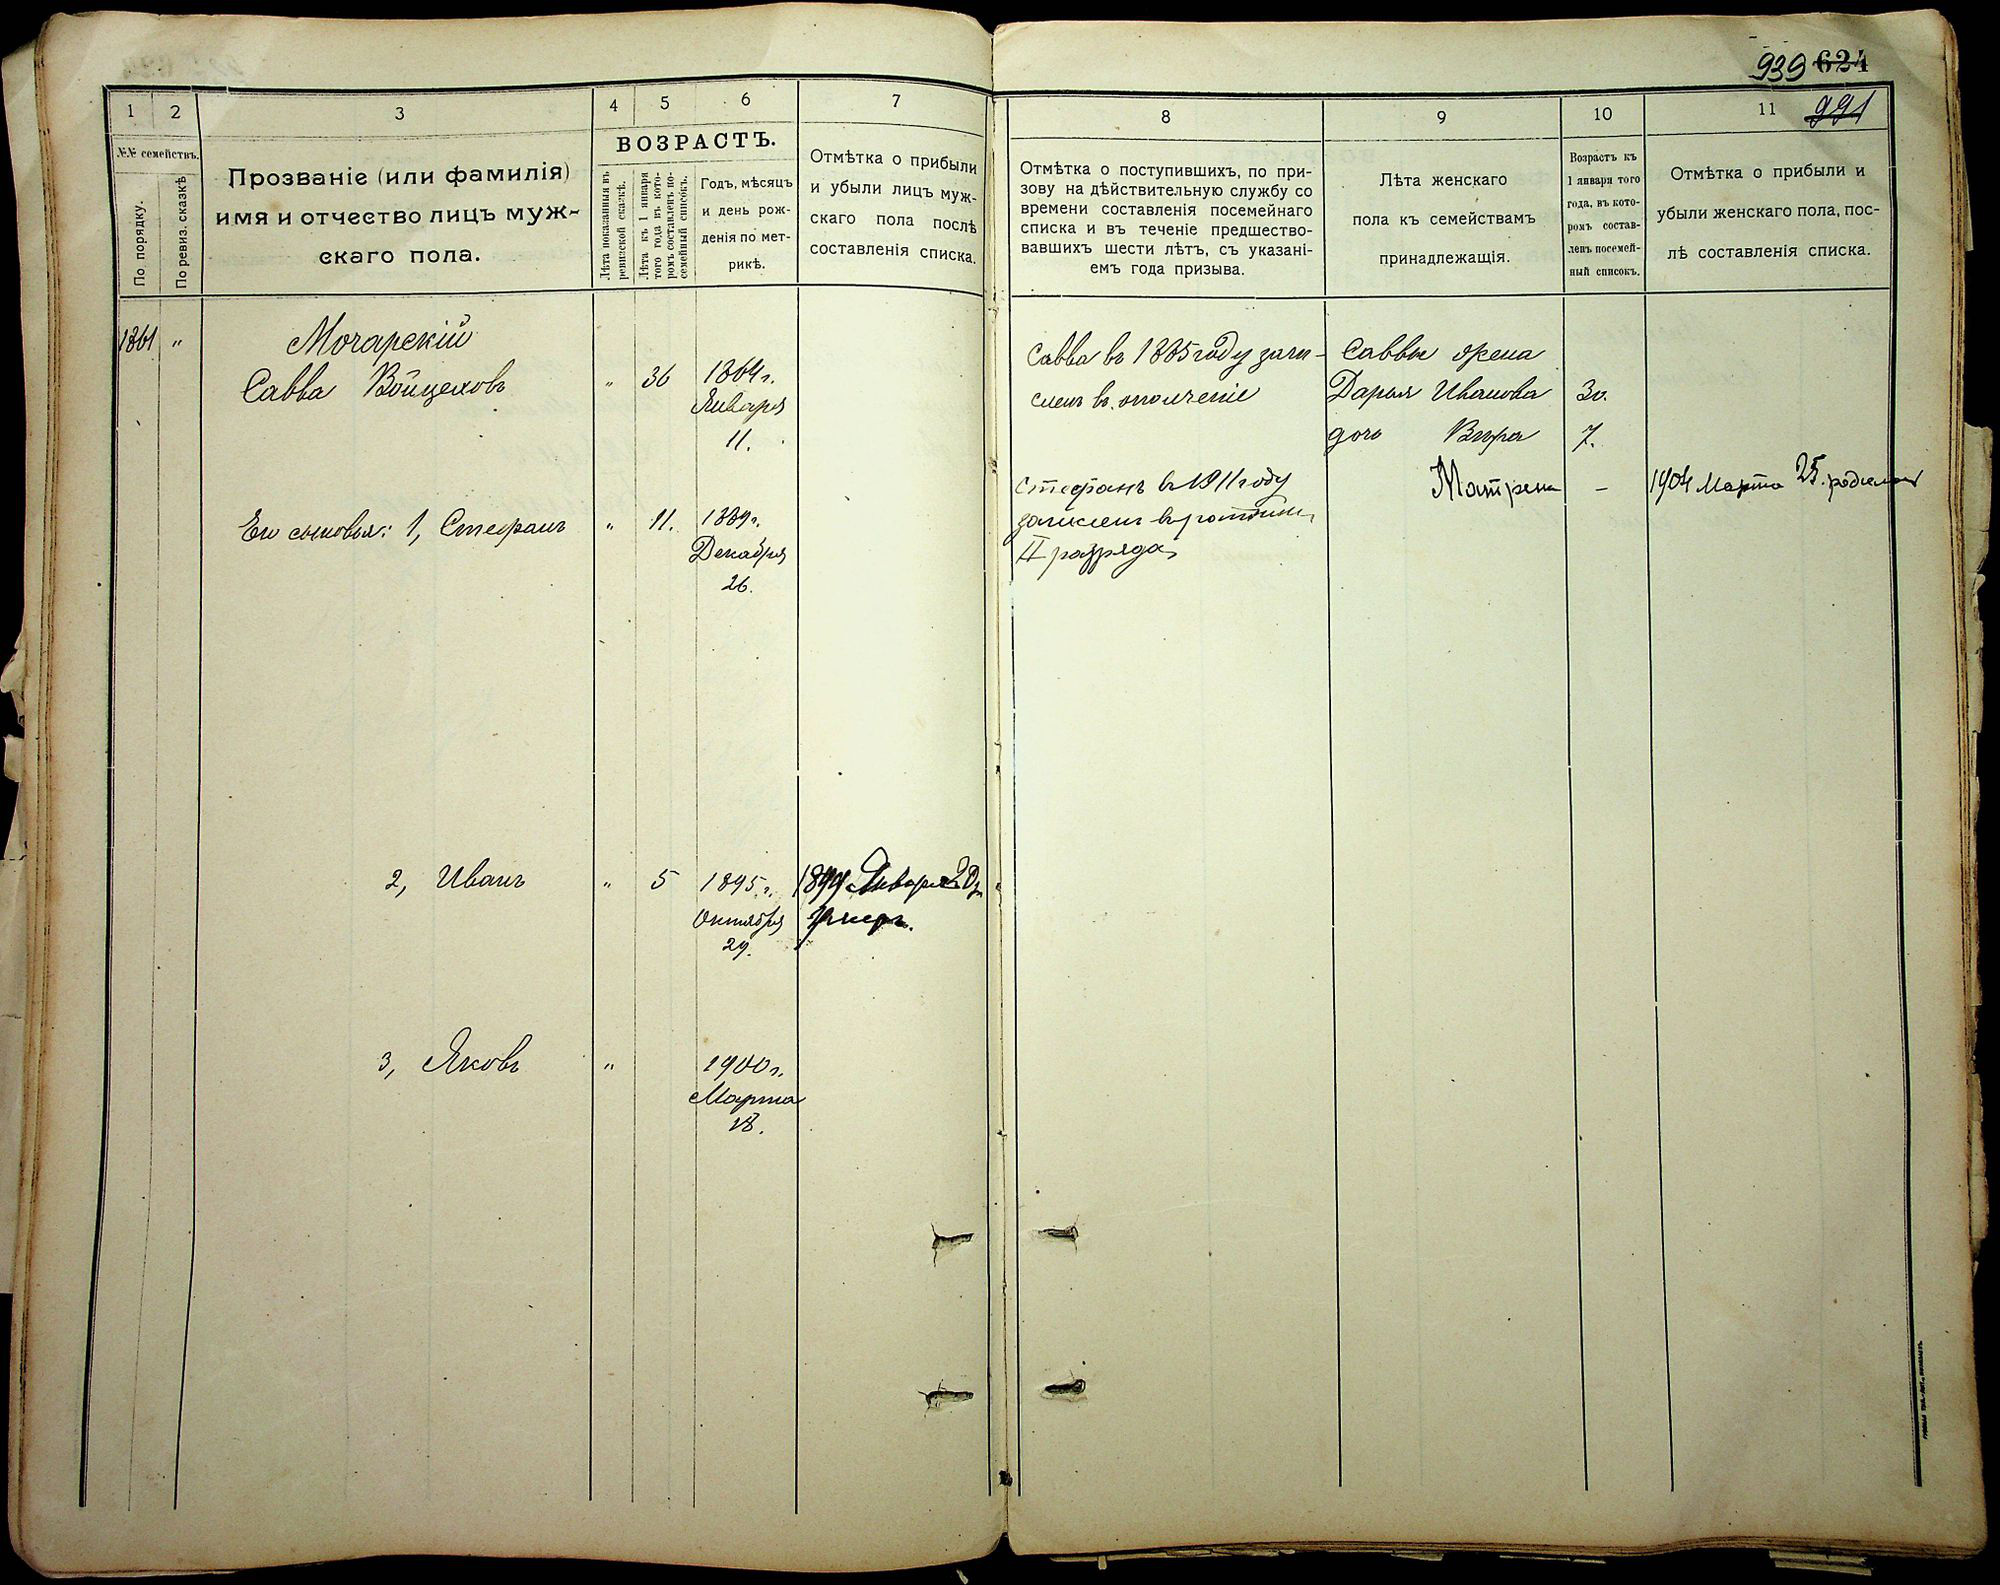 939 624
991
1 2 3 4 5 6 7 8 9 10 11
№№ семействъ.
По порядку.
По ревиз. сказкѣ
Прозваніе (или фамилія)
имя и отчество лицъ муж-
скаго пола.
ВОЗРАСТЪ.
Лѣта показанныя въ
ревизской сказкѣ.
Лѣта къ 1 января
того года къ кото-
ромъ составленъ по-
семейный списокъ.
Годъ, мѣсяцъ
и день рож-
денія по мет-
рикѣ.
Отмѣтка о прибыли
и убыли лицъ муж-
скаго пола послѣ
составленія списка.
Отмѣтка о поступившихъ, по при-
зову на дѣйствительную службу со
времени составленія посемейнаго
списка и въ теченіе предшество-
вавшихъ шести лѣтъ, съ указані-
емъ года призыва.
Лѣта женскаго
пола къ семействамъ
принадлежащія.
Возрастъ къ
1 января того
года, въ кото-
ромъ состав-
ленъ посемей-
ный списокъ.
Отмѣтка о прибыли и
убыли женскаго пола, пос-
лѣ составленія списка.
1361 "
Мочарскій
Савва Войцеховъ " 36 1864 г.
Января
11.
Савва въ 1885 году зачи-
сленъ въ ополченіе
Саввы жена
Дарья Иванова 30.
дочь Вѣра 7.
Матрена – 1904 Марта 25. родилась
Его сыновья: 1, Стефанъ " 11. 1889 г.
Декабря
26.
Стефанъ въ 1911 году
зачисленъ въ ратники
II разряда
2, Иванъ " 5 1895 г.
Октября
29.
1899 Января 20
Умеръ.
3, Яковъ " 1900 г.
Марта
18.